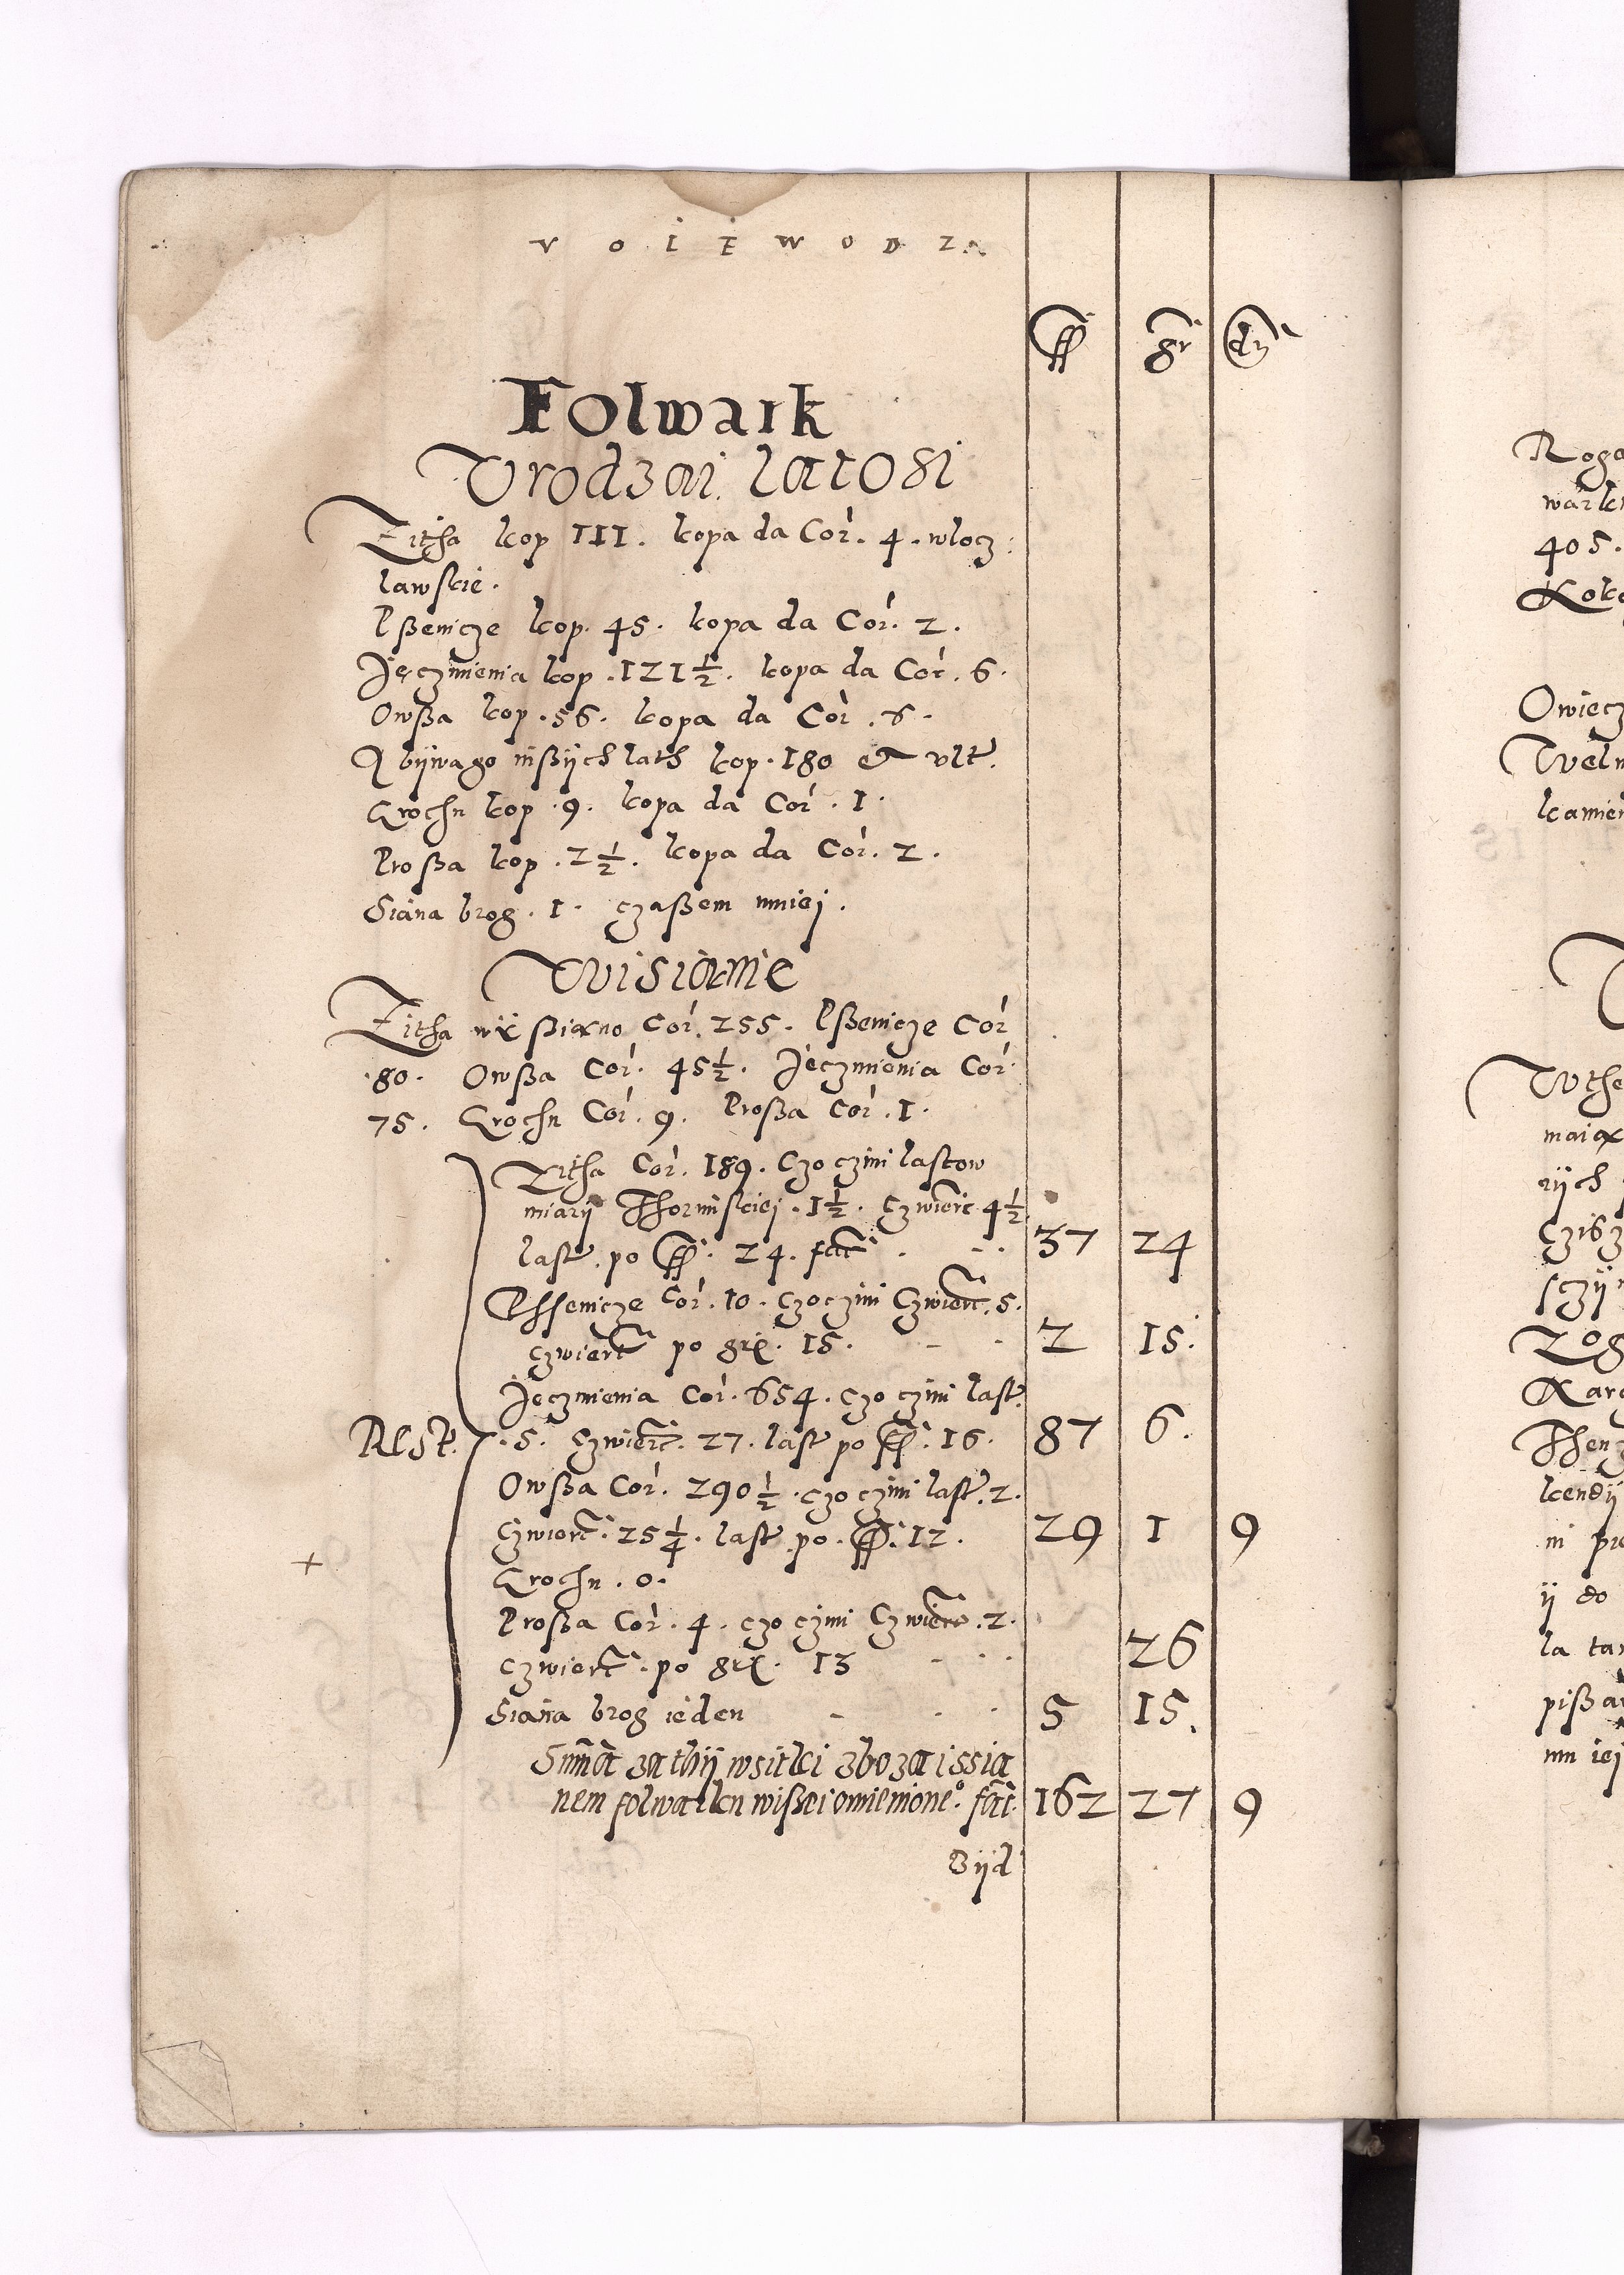 VOIEWODZ
ff gr dn
Folwark
Vrodzai latosi
Zitha kop 111. kopa da Cor. 4. wlocz:
lawskie.
Pßenicze kop. 45. kopa da Cor. 2.
Jęczmienia kop. 121½. kopa da Cor. 6.
Owßa kop. 56. kopa da Cor. 6.
A bywago inßych lath kop. 180 et vlt.
Grochu kop. 9. kopa da Cor. 1.
Proßa kop. 2½. kopa da Cor. 2.
Siana brog. 1. czaßem mniej.
Wisianie
Zitha wißiano Cor. 255. Pßenicze Cor
80. Owßa Cor. 45½. Jęczmienia Cor
75. Grochu Cor. 9. Proßa Cor. 1.
Zitha Cor. 189. Czo czini lastow
miary Thorunskiej. 1½. Czwierc 4½
last. po ff. 24. facit 37 24
Pssenicze Cor. 10. czo czini Czwierc. 5.
czwiert po grx. 15. 2 15.
Jęczmienia Cor. 654. czo czini last.
Rest. 5. Czwierc. 27. last po ff. 16. 87 6.
Owßa Cor. 290½. czo czini last. 2.
Czwierc. 25¼. last po. ff. 12. 29 1 9
+ Grochu. 0.
Proßa Cor. 4. czo czini Czwierc. 2.
czwierc. po grx. 13 26
Siana brog ieden 5 15.
Summa za thy wsitki zboza i ssia
nem folwarku wißei omienione°. fac. 162 27 9
Byd
Roga
405.
Owiecz
Weln
kamien
Wthe
maia
rych
kendy
y do
la tar
pißar
mn iej